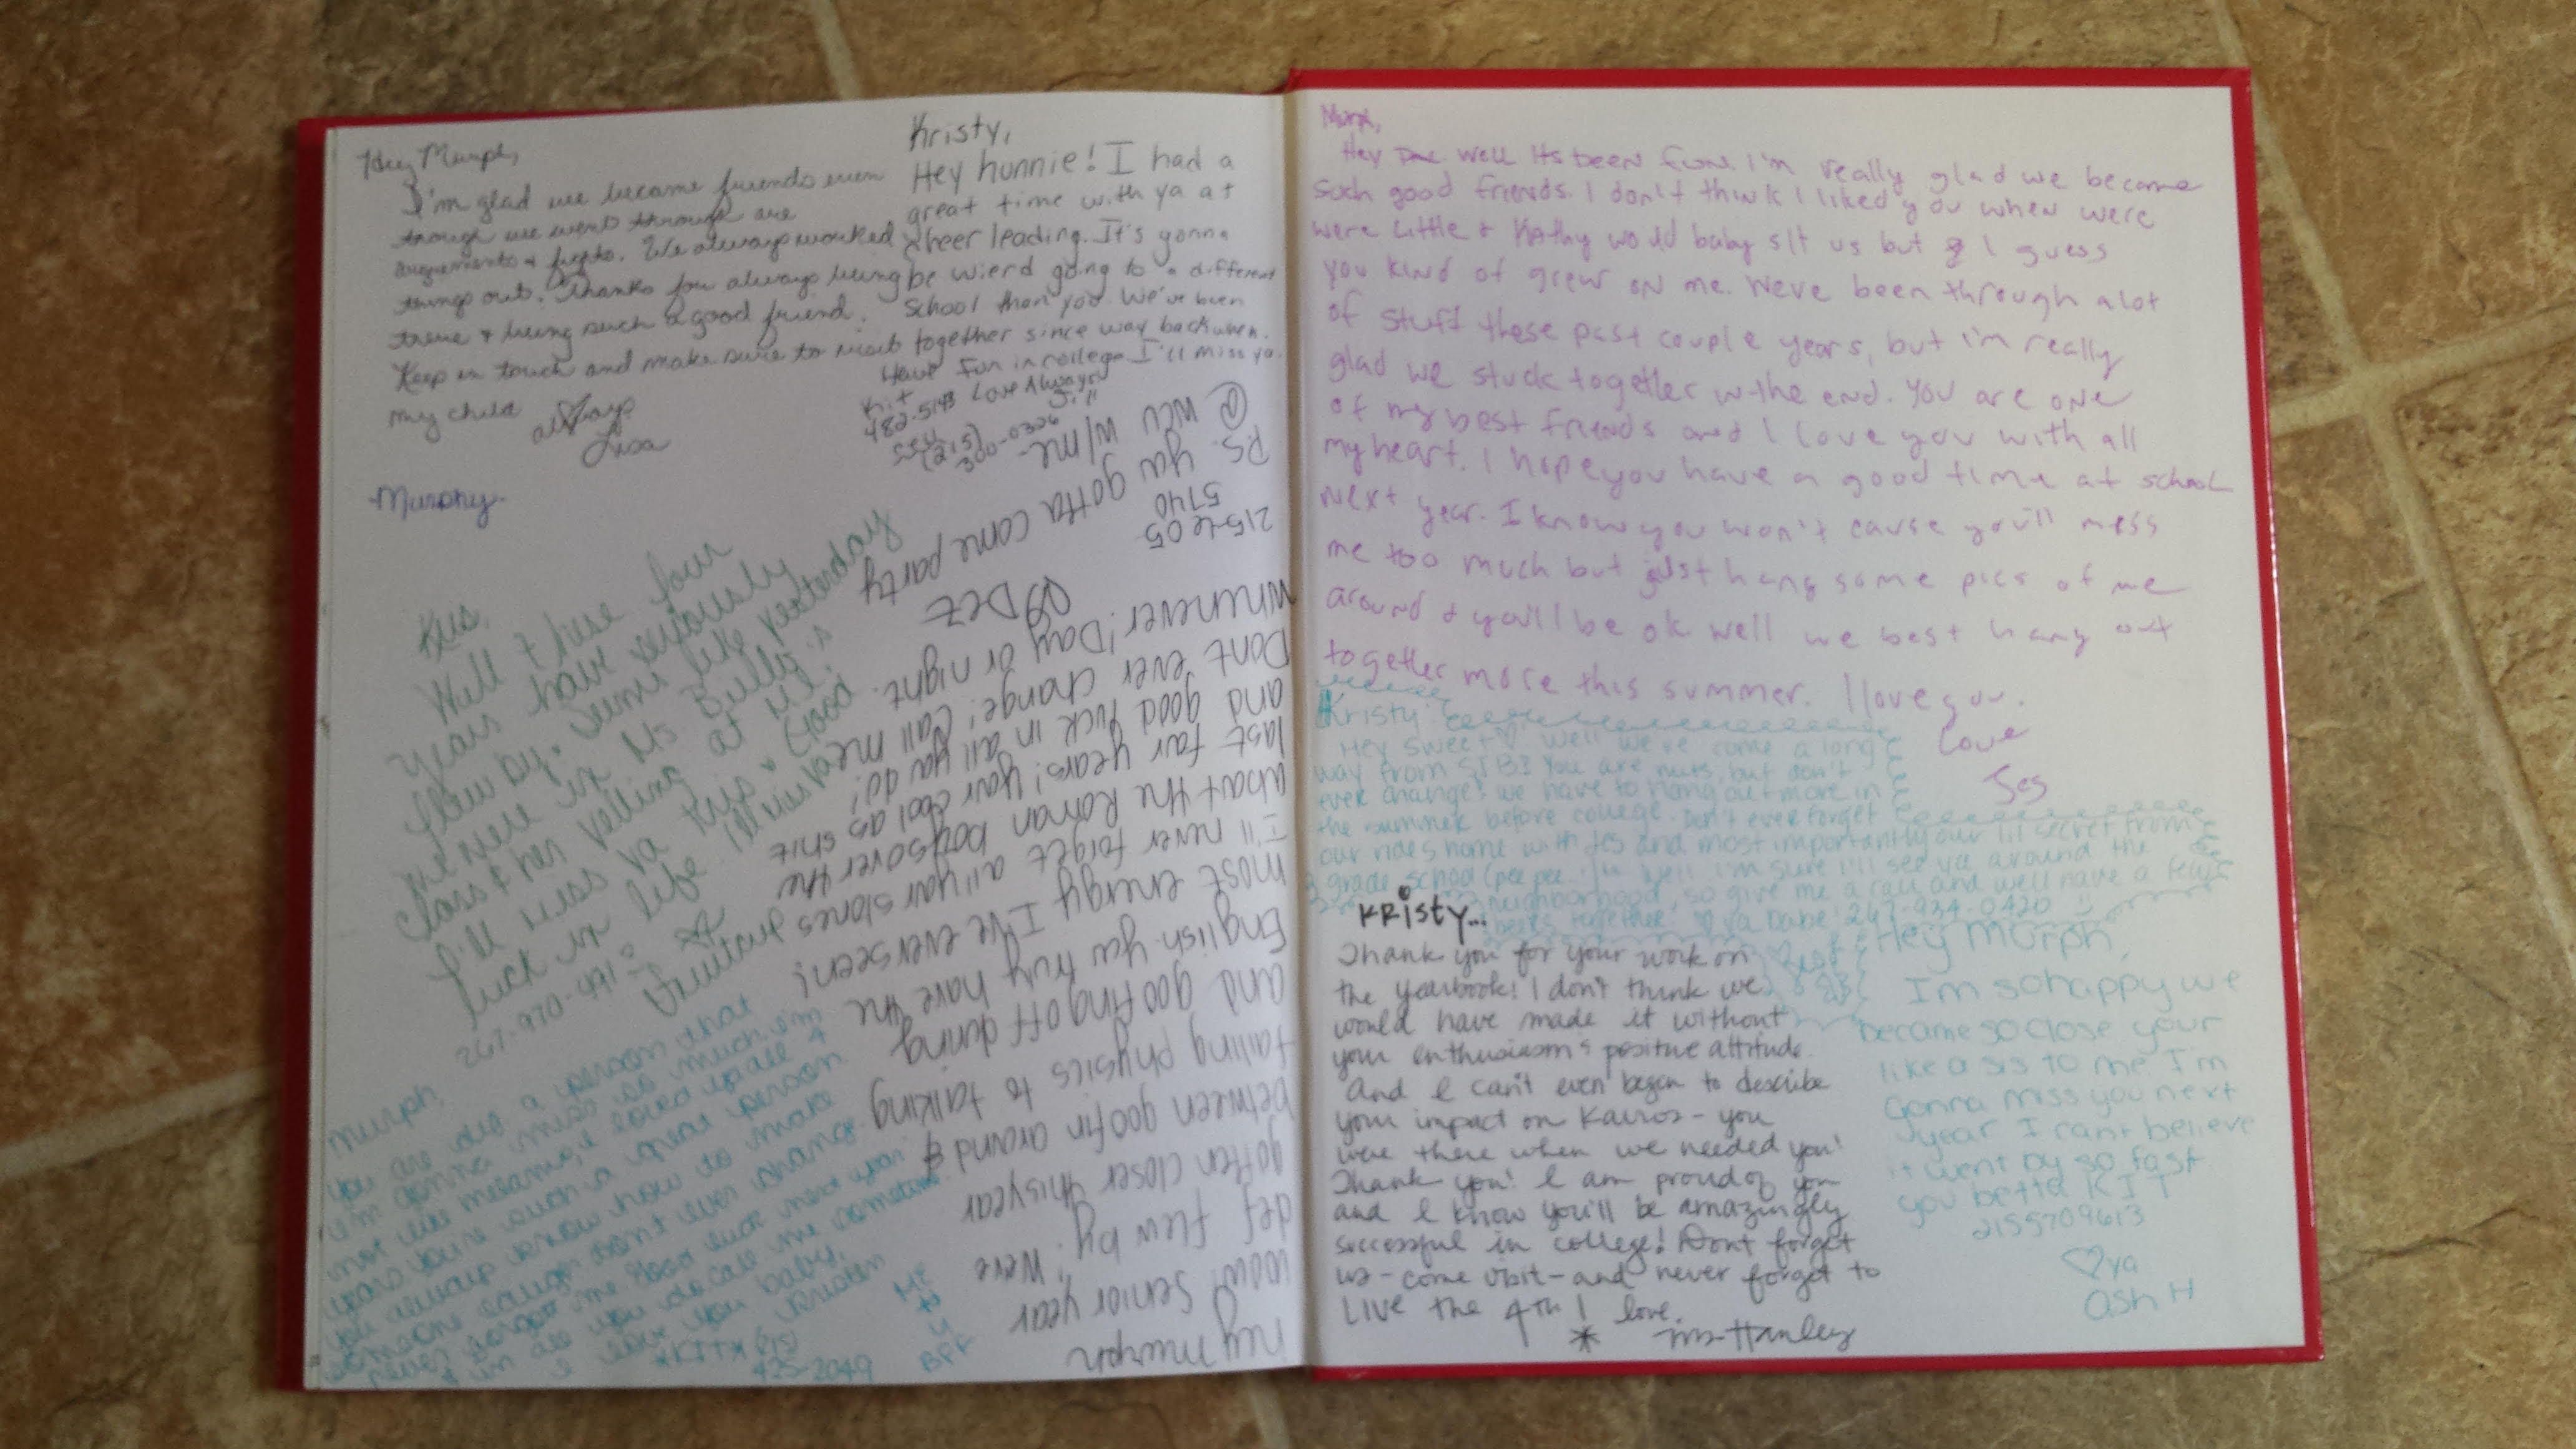 Hey Murph,
I'm glad we became friends even
though we went through are
arguements & fights. We always worked
things out. Thanks for always being
there & being such a good friend.
Keep in touch and make sure to visit
my child always
Lisa
Kristy,
Hey hunnie! I had a
great time with ya at
cheerleading. It's gonna
be wierd going to a different
school than you. We've been
together since way back when.
Have fun in college I'll miss ya.
Love Always
Jill
-Murphy-
Kris,
Well these four
years have seriously
flew by. Seems like yesterday
we were in Ms Bully's
class & her yelling at us!
I'll miss ya this & Good
luck in life
Murph,
you are def a person that
I'm gonna miss so much. I'm
not even messing, I loved ya all 4
years you're such a great person
you always know how to make
someone laugh don't ever change.
never forget me good luck next year
& in all you do call me sometime.
I love you baby,
Kristen
*KIT* (215)
425-2049
ME
&
U
BFF
Hey Murph
wow! Senior year
def flew by! We're
gotten closer this year
between goofin around &
failing physics to talking
and goofing off during
English. you truly have the
most energy I've ever seen!
I'll never forget all your stories
about the Roman boys over the
last four years! Your cool as shit
and good luck in all ya do!
Dont ever change! Call me
whenever! Day or night.
♡ Dez
215-605
5740
P.S. you gotta come party
@ WCU w/me
Murph,
Hey well its been fun. I'm really glad we became
such good friends. I don't think I liked you when were
were little & Kathy would baby sit us but I guess
you kind of grew on me. Weve been through alot
of stuff these past couple years, but i'm really
glad we stuck together in the end. You are one
of my best friends and I love you with all
my heart. I hope you have a good time at school
next year. I know you won't cause you'll miss
me too much but just hang some pics of me
around & you'll be ok well we best hang out
together more this summer. I love you.
Love
Jes
Kristy
Hey sweet♡ well we've come a long
way from STB! You are nuts, but don't
ever change! we have to hang out more in
the summer before college. Don't ever forget
our rides home with Jes and most importantly our lil secret from
grade school (pee pee). well I'm sure I'll see ya around the
neighborhood, so give me a call and we'll have a few
beers together! ♡ ya babe! 267-934-0420
KRisty...
Thank you for your work on
the yearbook! I don't think we
would have made it without
your enthusiasm & positive attitude.
And I can't even began to describe
your impact on Kairos - you
were there when we needed you!
Thank you! I am proud of you
and I know you'll be amazingly
successful in college! Dont forget
us - come visit - and never forget to
LIVE the 4th! love,
* Ms. Hanley
Hey Morph,
Im so happy we
became so close your
like a sis to me. I'm
Gonna miss you next
year I cant believe
it went by so fast
you betta K I T
2155709613
♡ya
ash H